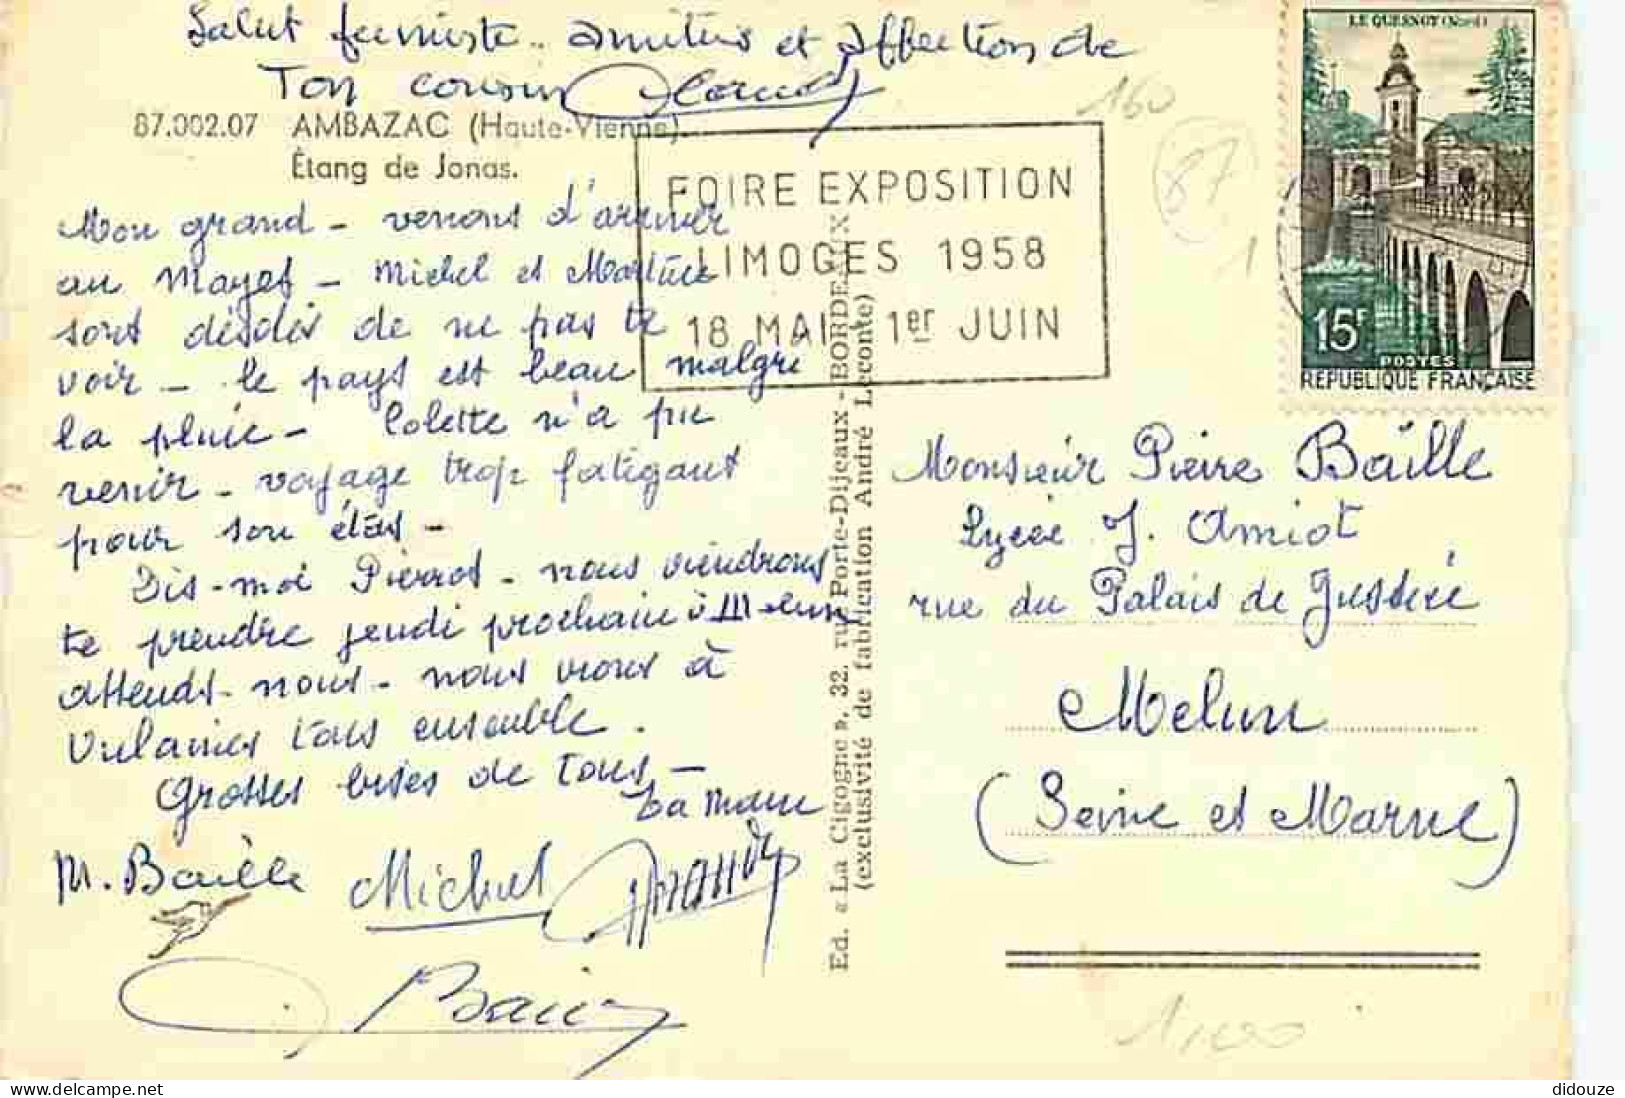 Salut fumiste.. amitiés et affection de
Ton cousin
87.002.07 AMBAZAC (Haute-Vienne).
Étang de Jonas.
Mon grand - venons d'arriver
au Mayet - Michel et Martine
sont désolés de ne pas te
voir - le pays est beau malgré
la pluie - Colette n'a pu
venir - voyage trop fatigant
pour son état -
Dis-moi Pierrot - nous viendrons
te prendre jeudi prochain à Melun
attends-nous - nous irons à
Vulaines tous ensemble.
Grosses bises de tous -
ta mam
M. Baille
Michel
FOIRE EXPOSITION
LIMOGES 1958
18 MAI - 1er JUIN
160
87
1
LE QUESNOY (Nord)
15F
POSTES
REPUBLIQUE FRANÇAISE
Ed. « La Cigogne », 32, rue Porte-Dijeaux - BORDEAUX
(exclusivité de fabrication André Leconte)
Monsieur Pierre Baille
Lycée J. Amiot
rue du Palais de Justice
Melun
(Seine et Marne)
didouze